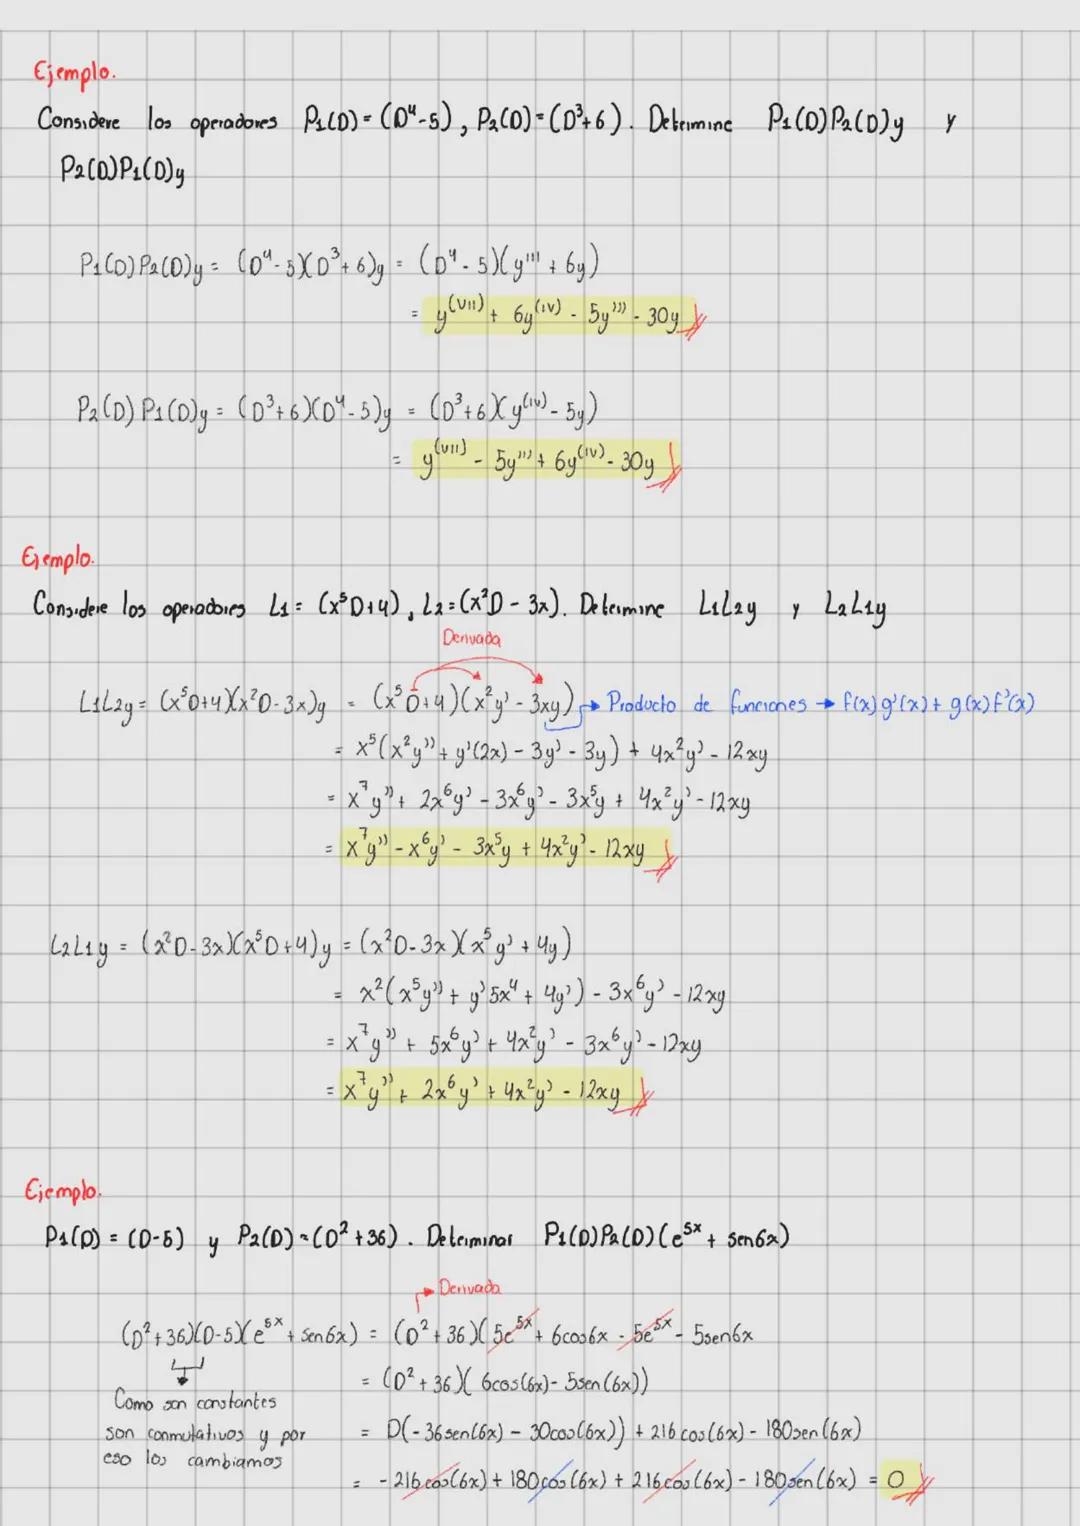 Ejemplo.
Considere los operadores P1(D) = (D⁴-5), P2(D) = (D³+6). Determine P1(D)P2(D)y y
P2(D)P1(D)y
P1(D)P2(D)y = (D⁴-5)(D³+6)y = (D⁴-5)(y''' + 6y)
= y^(VII) + 6y^(IV) - 5y''' - 30y
P2(D)P1(D)y = (D³+6)(D⁴-5)y = (D³+6)(y^(IV) - 5y)
= y^(VII) - 5y''' + 6y^(IV) - 30y
Ejemplo.
Considere los operadores L1 = (x⁵D+4), L2 = (x²D - 3x). Determine L1L2y y L2L1y
Derivada
L1L2y = (x⁵D+4)(x²D-3x)y = (x⁵D+4)(x²y' - 3xy) → Producto de funciones → f(x)g'(x) + g(x)f'(x)
= x⁵(x²y'' + y'(2x) - 3y' - 3y) + 4x²y' - 12xy
= x⁷y'' + 2x⁶y' - 3x⁶y' - 3x⁵y + 4x²y' - 12xy
= x⁷y'' - x⁶y' - 3x⁵y + 4x²y' - 12xy
L2L1y = (x²D-3x)(x⁵D+4)y = (x²D-3x)(x⁵y' + 4y)
= x²(x⁵y'' + y'5x⁴ + 4y') - 3x⁶y' - 12xy
= x⁷y'' + 5x⁶y' + 4x²y' - 3x⁶y' - 12xy
= x⁷y'' + 2x⁶y' + 4x²y' - 12xy
Ejemplo.
P1(D) = (D-5) y P2(D) = (D² + 36). Determinar P1(D)P2(D)(e^5x + sen6x)
→ Derivada
(D²+36)(D-5)(e^5x + sen6x) = (D² + 36)(5e^5x + 6cos6x - 5e^5x - 5sen6x
= (D² + 36)(6cos(6x) - 5sen(6x))
Como son constantes
son conmutativos y por
eso los cambiamos
= D(-36sen(6x) - 30cos(6x)) + 216cos(6x) - 180sen(6x)
= -216cos(6x) + 180cos(6x) + 216cos(6x) - 180sen(6x) = 0